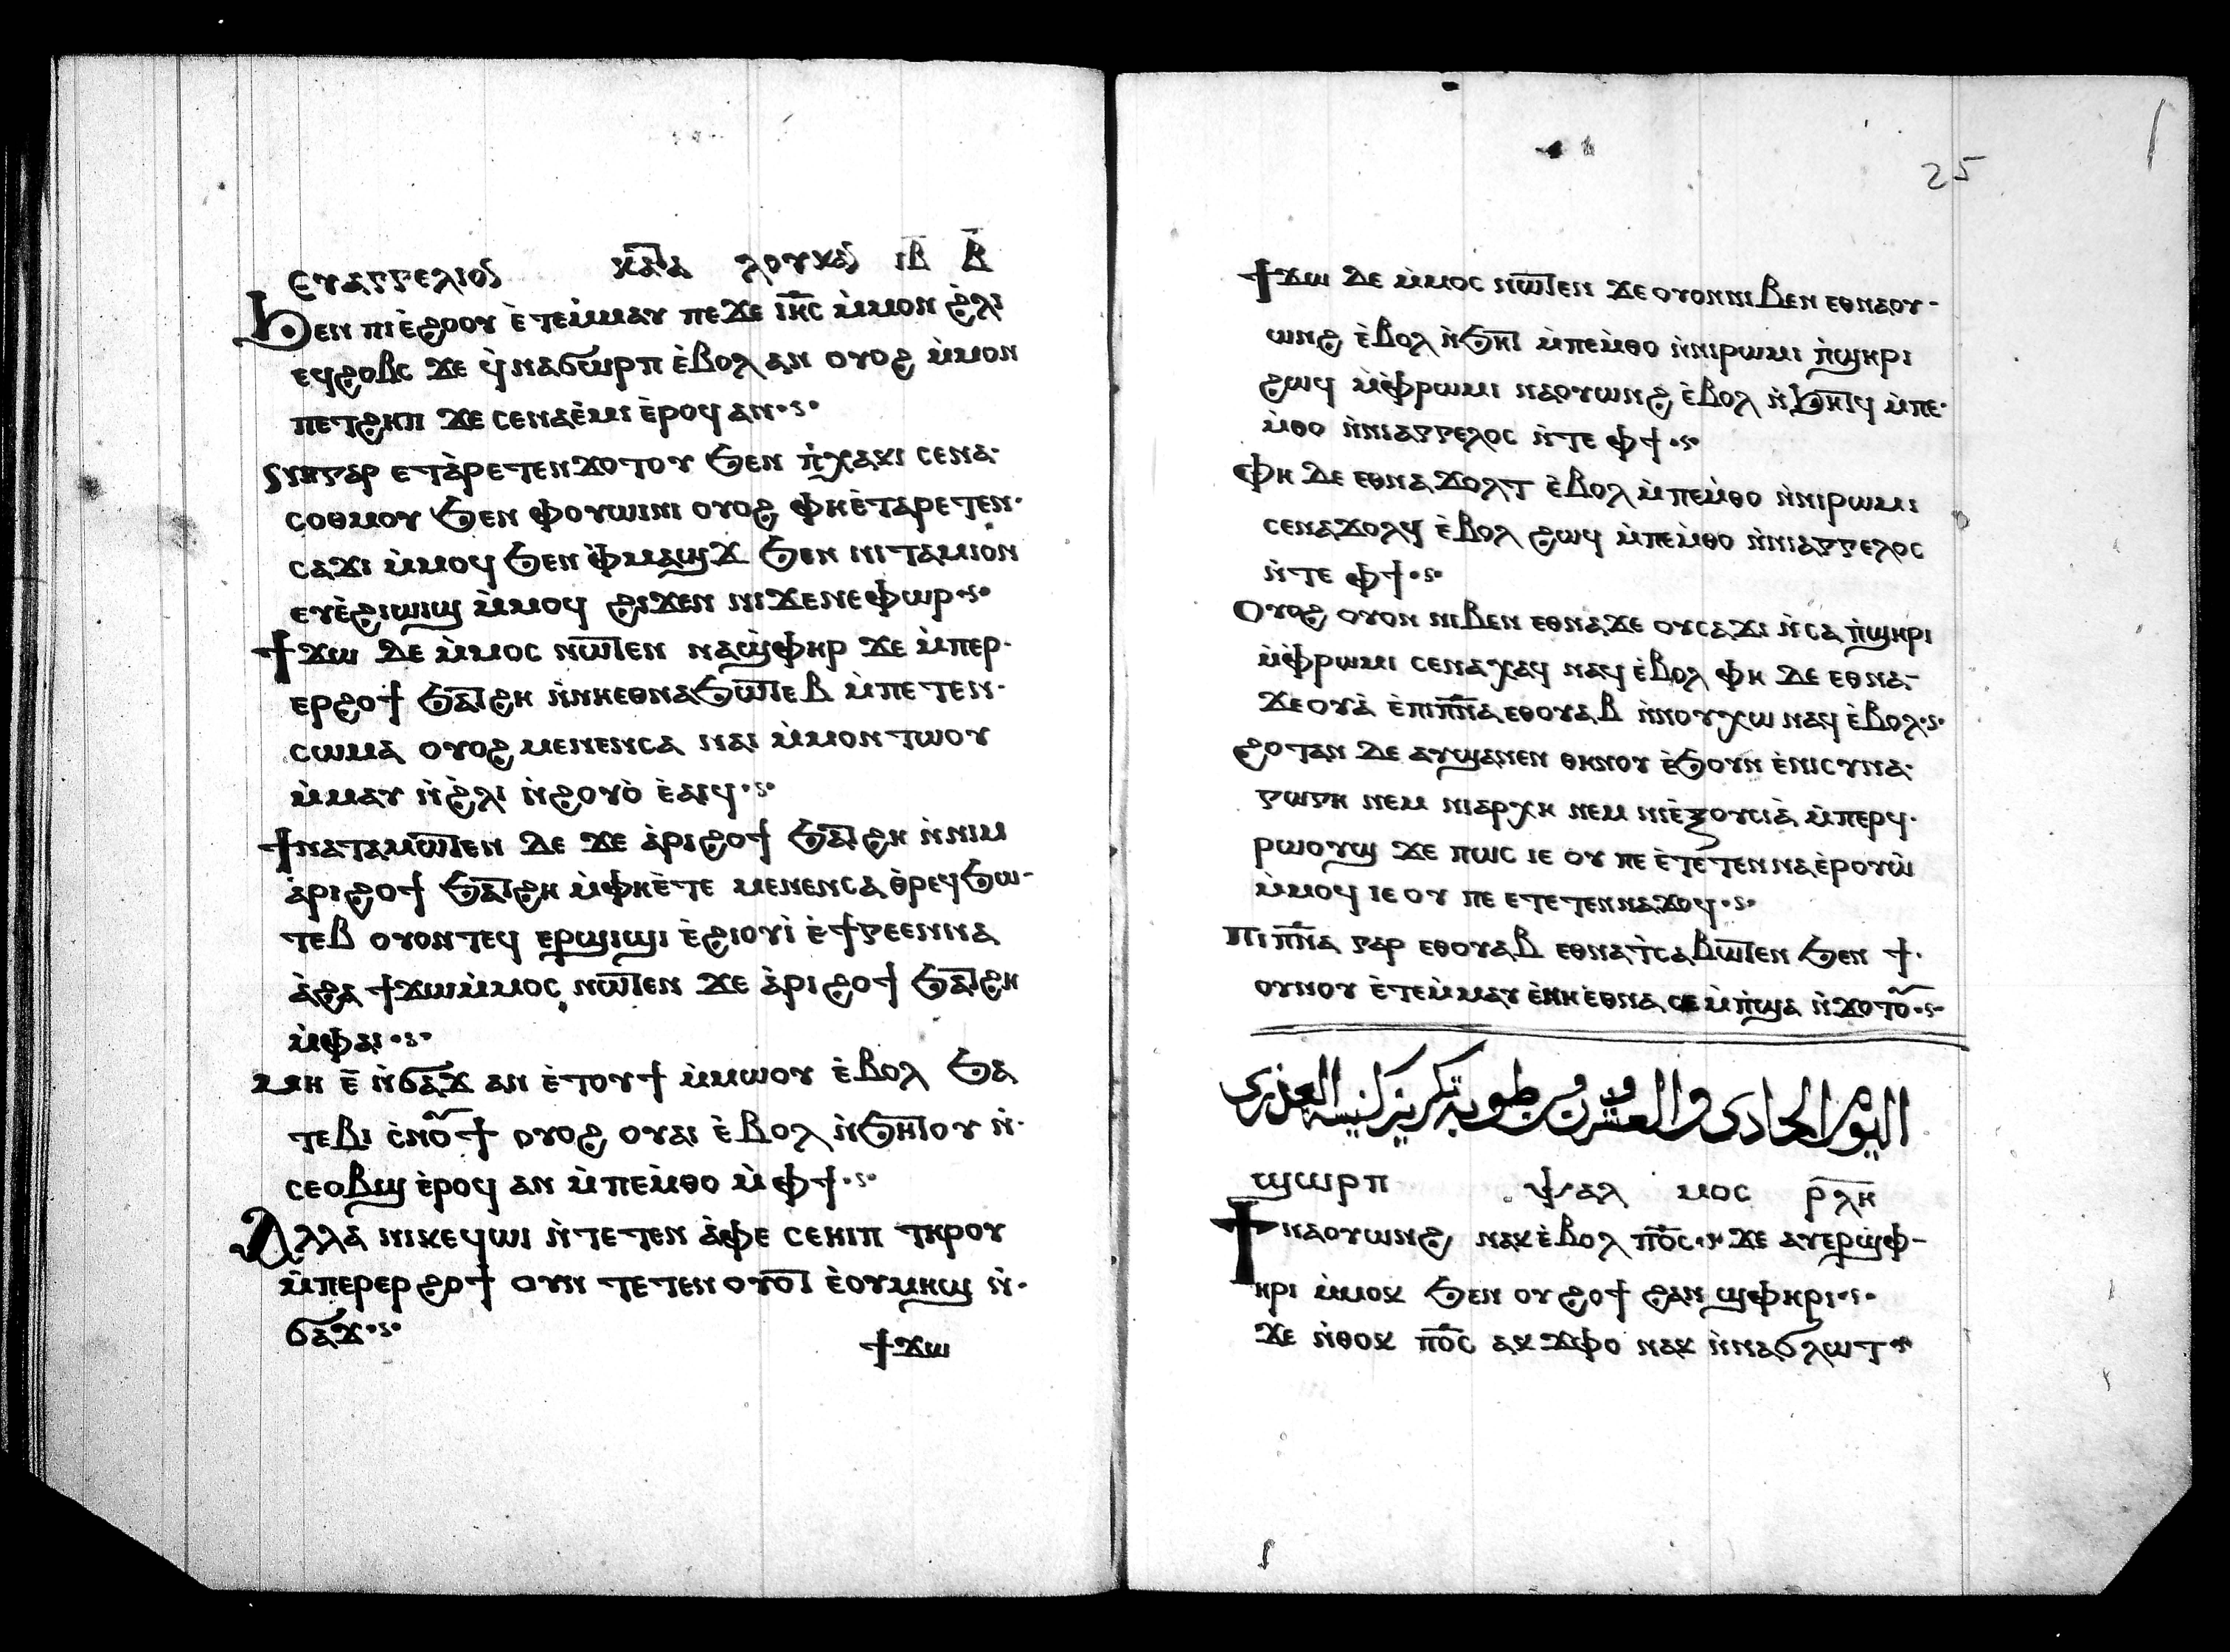 ⲉⲩⲁⲅⲅⲉⲗⲓⲟⲥ ⲕⲁⲧⲁ ⲗⲟⲩⲕⲁⲥ ⲓ̅ⲃ̅ ⲃ̅
ϧⲉⲛ ⲡⲓⲉ̀ϩⲟⲟⲩ ⲉ̀ⲧⲉⲙ̀ⲙⲁⲩ ⲡⲉϫⲉ ⲓ̅ⲏ̅ⲥ̅ ⲙ̀ⲙⲟⲛ ϩ̀ⲗⲓ
ⲉϥϩⲟⲃⲥ ϫⲉ ϥ̀ⲛⲁϭⲱⲣⲡ ⲉ̀ⲃⲟⲗ ⲁⲛ ⲟⲩⲟϩ ⲙ̀ⲙⲟⲛ
ⲡⲉⲧϩⲏⲡ ϫⲉ ⲥⲉⲛⲁⲉ̀ⲙⲓ ⲉ̀ⲣⲟϥ ⲁⲛ·ⲋ·
ⲛⲏⲅⲁⲣ ⲉⲧⲁ̀ⲣⲉⲧⲉⲛϫⲟⲧⲟⲩ ϧⲉⲛ ⲡ̀ⲭⲁⲕⲓ ⲥⲉⲛⲁ-
ⲥⲟⲑⲙⲟⲩ ϧⲉⲛ ⲫⲟⲩⲱⲓⲛⲓ ⲟⲩⲟϩ ⲫⲏⲉ̀ⲧⲁⲣⲉⲧⲉⲛ-
ⲥⲁϫⲓ ⲙ̀ⲙⲟϥ ϧⲉⲛ ⲫ̀ⲙⲁϣϫ ϧⲉⲛ ⲛⲓⲧⲁⲙⲓⲟⲛ
ⲉⲩⲉ̀ϩⲓⲱⲓϣ ⲙ̀ⲙⲟϥ ϩⲓϫⲉⲛ ⲛⲓϫⲉⲛⲉⲫⲱⲣ·ⲋ·
ϯϫⲱ ⲇⲉ ⲙ̀ⲙⲟⲥ ⲛⲱⲧⲉⲛ ⲛⲁϣ̀ⲫⲏⲣ ϫⲉ ⲙ̀ⲡⲉⲣ-
ⲉⲣϩⲟϯ ϧⲁⲧϩⲏ ⲛ̀ⲛⲏⲉⲑⲛⲁϧⲱⲧⲉⲃ ⲙ̀ⲡⲉⲧⲉⲛ-
ⲥⲱⲙⲁ ⲟⲩⲟϩ ⲙⲉⲛⲉⲛⲥⲁ ⲛⲁⲓ ⲙ̀ⲙⲟⲛⲧⲱⲟⲩ
ⲙ̀ⲙⲁⲩ ⲛ̀ϩ̀ⲗⲓ ⲛ̀ϩⲟⲩⲟ̀ ⲉ̀ⲁⲓϥ·ⲋ·
ϯⲛⲁⲧⲁⲙⲱⲧⲉⲛ ⲇⲉ ϫⲉ ⲁ̀ⲣⲓϩⲟϯ ϧⲁⲧϩⲏ ⲛ̀ⲛⲓⲙ
ⲁ̀ⲣⲓϩⲟϯ ϧⲁⲧϩⲏ ⲙ̀ⲫⲏⲉ̀ⲧⲉ ⲙⲉⲛⲉⲛⲥⲁ ⲑ̀ⲣⲉϥϧⲱ-
ⲧⲉⲃ ⲟⲩⲟⲛⲧⲉϥ ⲉⲣϣⲓϣⲓ ⲉ̀ϩⲓⲟⲩⲓ̀ ⲉ̀ϯⲅⲉⲉⲛⲛⲁ
ⲁ̀ϩⲁ ϯϫⲱⲙ̀ⲙⲟⲥ ⲛⲱⲧⲉⲛ ϫⲉ ⲁ̀ⲣⲓϩⲟϯ ϧⲁⲧϩⲏ
ⲙ̀ⲫⲁⲓ·ⲋ·
ⲙⲏ ⲉ̅ ⲛ̀ϭⲁϫ ⲁⲛ ⲉ̀ⲧⲟⲩϯ ⲙ̀ⲙⲱⲟⲩ ⲉ̀ⲃⲟⲗ ϧⲁ
ⲧⲉⲃⲓ ⲥ̀ⲛⲟ̅ϯ ⲟⲩⲟϩ ⲟⲩⲁⲓ ⲉ̀ⲃⲟⲗ ⲛ̀ϧⲏⲧⲟⲩ ⲛ̀-
ⲥⲉⲟⲃϣ ⲉ̀ⲣⲟϥ ⲁⲛ ⲙ̀ⲡⲉⲙ̀ⲑⲟ ⲙ̀ⲫϯ·ⲋ·
ⲁⲗⲗⲁ ⲛⲓⲕⲉϥⲱⲓ ⲛ̀ⲧⲉⲧⲉⲛ ⲁ̀ⲫⲉ ⲥⲉⲏⲡ ⲧⲏⲣⲟⲩ
ⲙ̀ⲡⲉⲣⲉⲣϩⲟϯ ⲟⲩⲛ ⲧⲉⲧⲉⲛⲟⲩⲟⲧ ⲉ̀ⲟⲩⲙⲏϣ ⲛ̀-
ϭⲁϫ·ⲋ·
ϯϫⲱ
25
ϯϫⲱ ⲇⲉ ⲙ̀ⲙⲟⲥ ⲛⲱⲧⲉⲛ ϫⲉ ⲟⲩⲟⲛⲛⲓⲃⲉⲛ ⲉⲑⲛⲁⲟⲩ-
ⲱⲛϩ ⲉ̀ⲃⲟⲗ ⲛ̀ϧⲏⲧ ⲙ̀ⲡⲉⲙ̀ⲑⲟ ⲛ̀ⲛⲓⲣⲱⲙⲓ ⲡ̀ϣⲏⲣⲓ
ϩⲱϥ ⲙ̀ⲫ̀ⲣⲱⲙⲓ ⲛⲁⲟⲩⲱⲛϩ ⲉ̀ⲃⲟⲗ ⲛ̀ϧⲏⲧϥ ⲙ̀ⲡⲉ-
ⲙ̀ⲑⲟ ⲛ̀ⲛⲓⲁⲅⲅⲉⲗⲟⲥ ⲛ̀ⲧⲉ ⲫϯ·ⲋ·
ⲫⲏ ⲇⲉ ⲉⲑⲛⲁϫⲟⲗⲧ ⲉ̀ⲃⲟⲗ ⲙ̀ⲡⲉⲙ̀ⲑⲟ ⲛ̀ⲛⲓⲣⲱⲙⲓ
ⲥⲉⲛⲁϫⲟⲗϥ ⲉ̀ⲃⲟⲗ ϩⲱϥ ⲙ̀ⲡⲉⲙ̀ⲑⲟ ⲛ̀ⲛⲓⲁⲅⲅⲉⲗⲟⲥ
ⲛ̀ⲧⲉ ⲫϯ·ⲋ·
ⲟⲩⲟϩ ⲟⲩⲟⲛ ⲛⲓⲃⲉⲛ ⲉⲑⲛⲁϫⲉ ⲟⲩⲥⲁϫⲓ ⲛ̀ⲥⲁ ⲡ̀ϣⲏⲣⲓ
ⲙ̀ⲫ̀ⲣⲱⲙⲓ ⲥⲉⲛⲁⲭⲁϥ ⲛⲁϥ ⲉ̀ⲃⲟⲗ ⲫⲏ ⲇⲉ ⲉⲑⲛⲁ-
ϫⲉⲟⲩⲁ̀ ⲉ̀ⲡⲓⲡ̅ⲛ̅ⲁ ⲉⲑⲟⲩⲁⲃ ⲛ̀ⲛⲟⲩⲭⲱ ⲛⲁϥ ⲉ̀ⲃⲟⲗ·ⲋ·
ϩⲟⲧⲁⲛ ⲇⲉ ⲁⲩϣⲁⲛⲉⲛ ⲑⲏⲛⲟⲩ ⲉ̀ϧⲟⲩⲛ ⲉ̀ⲛⲓⲥⲩⲛⲁ-
ⲅⲱⲅⲏ ⲛⲉⲙ ⲛⲓⲁⲣⲭⲏ ⲛⲉⲙ ⲛⲓⲉ̀ⲝⲟⲩⲥⲓⲁ̀ ⲙ̀ⲡⲉⲣϥ-
ⲣⲱⲟⲩϣ ϫⲉ ⲡⲱⲥ ⲓⲉ ⲟⲩ ⲡⲉ ⲉ̀ⲧⲉⲧⲉⲛⲛⲁⲉ̀ⲣⲟⲩⲱ̀
ⲙ̀ⲙⲟϥ ⲓⲉ ⲟⲩ ⲡⲉ ⲉⲧⲉⲧⲉⲛⲛⲁϫⲟϥ·ⲋ·
ⲡⲓⲡ̅ⲛ̅ⲁ ⲅⲁⲣ ⲉⲑⲟⲩⲁⲃ ⲉⲑⲛⲁⲧ̀ⲥⲁⲃⲱⲧⲉⲛ ϧⲉⲛ ϯ-
ⲟⲩⲛⲟⲩ ⲉ̀ⲧⲉⲙ̀ⲙⲁⲩ ⲉ̀ⲛⲏⲉ̀ⲑⲛⲁ ⲥⲉⲙ̀ⲡ̀ϣⲁ ⲛ̀ϫⲟⲧⲟ̅·ⲋ·
اليوم الحادى والعشرون طوبه تكريز كنيسه العذرى
ϣⲱⲣⲡ ⲯⲁⲗ ⲙⲟⲥ ⲣ̅ⲗ̅ⲏ̅
ϯⲛⲁⲟⲩⲱⲛϩ ⲛⲁⲕ ⲉ̀ⲃⲟⲗ ⲡ̅ⲟ̅ⲥ̅·ⲋ· ϫⲉ ⲁⲩⲉⲣϣ̀ⲫ-
ⲏⲣⲓ ⲙ̀ⲙⲟⲕ ϧⲉⲛ ⲟⲩϩⲟϯ ϩⲁⲛϣⲫⲏⲣⲓ·ⲋ·
ϫⲉ ⲛ̀ⲑⲟⲕ ⲡ̅ⲟ̅ⲥ̅ ⲁⲕ ϫⲫⲟ ⲛⲁⲕ ⲛ̀ⲛⲁϭⲗⲱⲧ·ⲋ·